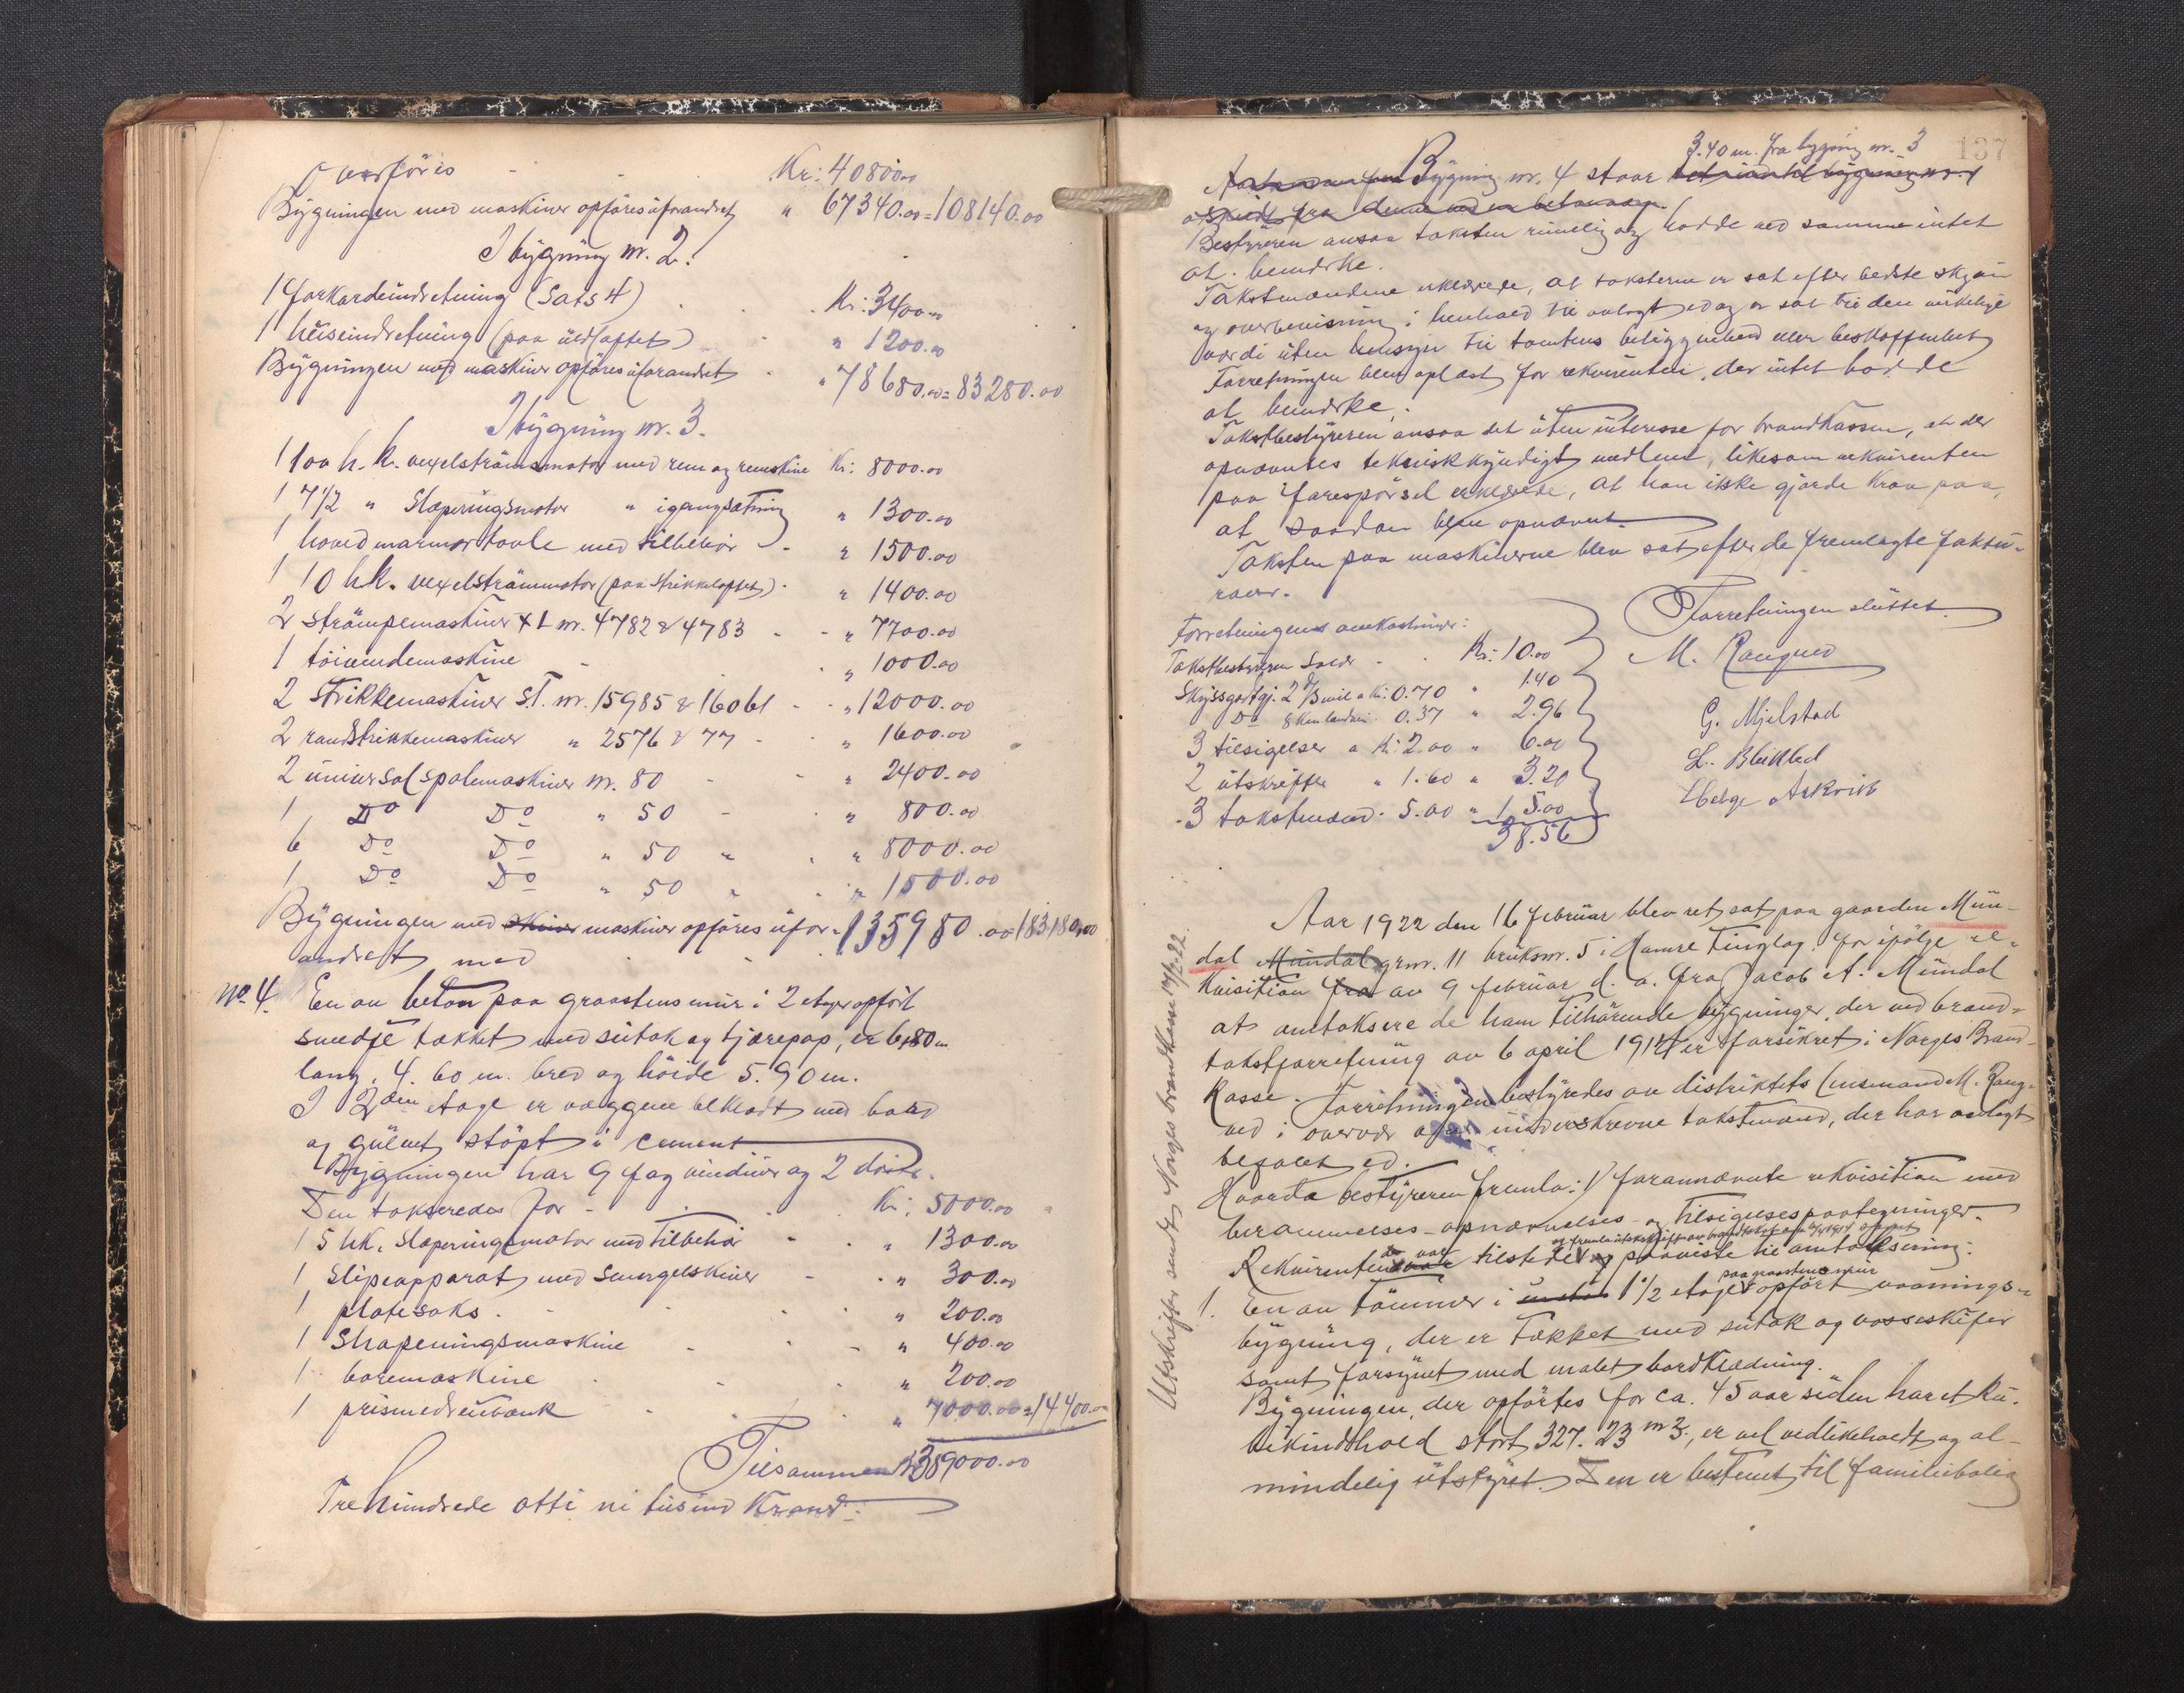 Overföres - - Kr: 40800.00
Bygningen med maskiner opføres uforandret " 67340.00 = 108140.00
I bygning nr. 2.
1 forkardeindretning (Sats 4) . . Kr: 3400.00
1 heiseindretning (paa uldloftet) . " 1200.00
Bygningen med maskiner opføres uforandret . " 78680.00 = 83280.00
I bygning nr. 3.
1 100 h.k. vexelströmsmotor med rem og remskive Kr: 8000.00
1 7 1/2 " Slæperingsmotor " igangsætning " 1300.00
1 hoved marmortavle med tilbehör - " 1500.00
1 10 hk. vexelströmmotor (paa strikkeloftet) . " 1400.00
2 strömpemaskiner + L nr. 4782 & 4783 - - " 7700.00
1 töivendemaskine - . " 1000.00
2 Strikkemaskiner S.T. nr. 15985 & 16061 - - " 12000.00
2 randstrikkemaskiner " 2576 & 77 - " 1600.00
2 universal spolemaskiner nr. 80 - - " 2400.00
1 Do Do " 50 - " 800.00
6 Do Do " 50 " . " 8000.00
1 Do Do " 50 " . " 1500.00
Bygningen med maskiner opföres ufor- " 135980.00 = 183180.00
andret med
No. 4. En av beton paa graastensmur i 2 etager opfört
smedje tækket med sutak og tjærepap, er 6,80 m
lang, 4.60 m. bred og höide 5.90 m.
I 2den etage er væggene beklædt med bord
og gulvet stöpt i cement
Bygningen har 9 fag vinduer og 2 döre.
Den takseredes for - . . Kr: 5000.00
1 5 hk. Slæperingsmotor med tilbehör - . " 1300.00
1 slipeapparat med Smergelskiver - . " 300.00
1 platesaks . - . . " 200.00
1 Shapeningsmaskine - - " 400.00
1 boremaskine . . " 200.00
1 prismedreiebænk - . . " 7000.00 = 14400.00
Tilsammen kr 389000.00
Tre hundrede otti ni tusind Kroner.
137
3.40 m. fra bygning nr. 3
Bygning nr. 4 staar
Bestyreren ansaa taksten rimelig og hadde ved samme intet
at bemerke.
Takstmændene erklærede, at taksterne er sat efter bedste skjön
og overbevisning i henhold til avlagt ed og er sat til den virkelige
værdi uten hensyn til tomtens beliggenhed eller beskaffenhet
Forretningen blev oplæst for rekvirenten, der intet hadde
at bemerke.
Takstbestyreren ansaa det uten interesse for brandkassen, at der
opnævntes teknisk kyndigt medlem, likesom rekvirenten
paa forespörsel erklærede, at han ikke gjorde krav paa,
at saadan blev opnævnt.
Taksten paa maskinerne blev sat efter de fremlagte faktu-
raer.
Forretningen sluttet.
Forretningens omkostninger:
Takstbestyreren Salær - . Kr: 10.00
Skyssgodtgj. 2 2/3 mil a Kr: 0.70 " 1.40
Do 8 km landvei 0.37 " 2.96
3 tilsigelser a Kr: 2.00 " 6.00
2 utskrifter " 1.60 " 3.20
3 takstmænd . 5.00 " 15.00
38.56
M. Rangved
G. Mjelstad
L. Bleikled
Helge Askvik
Utskrifter sendt Norges brandkasse 17/2-22.
Aar 1922 den 16 februar blev ret sat paa gaarden Mun-
dal Mundal grnr. 11 bruksnr. 5 i Hamre Tinglag for ifölge re-
kvisition fra av 9 februar d. a. fra Jacob A. Mundal
at omtaksere de ham tilhörende bygninger, der ved brand-
takstforretning av 6 april 1914 er forsikret i Norges Brand-
kasse. Forretningen bestyredes av distriktets lensmand M. Rang-
ved i overvær av underskrevne takstmænd, der har avlagt
befalet ed.
Hvorda bestyreren fremla: 1/ forannævnte rekvisition med
berammelses- opnævnelses- og tilsigelsespaategninger.
og fremla utskrift av brandtakst av 6/4 1914
Rekvirenten der var tilstede og paaviste til omtaksering:
paa graastensmur
1. En av tömmer i 1 1/2 etage opfört vaanings-
bygning, der er tækket med sutak og vosseskifer
samt forsynet med malet bordklædning.
Bygningen, der opförtes for ca. 45 aar siden har et ku-
bikindhold stort 327.23 m3., er vel vedlikeholdt og al-
mindelig utstyret. Den er bestemt til familiebolig